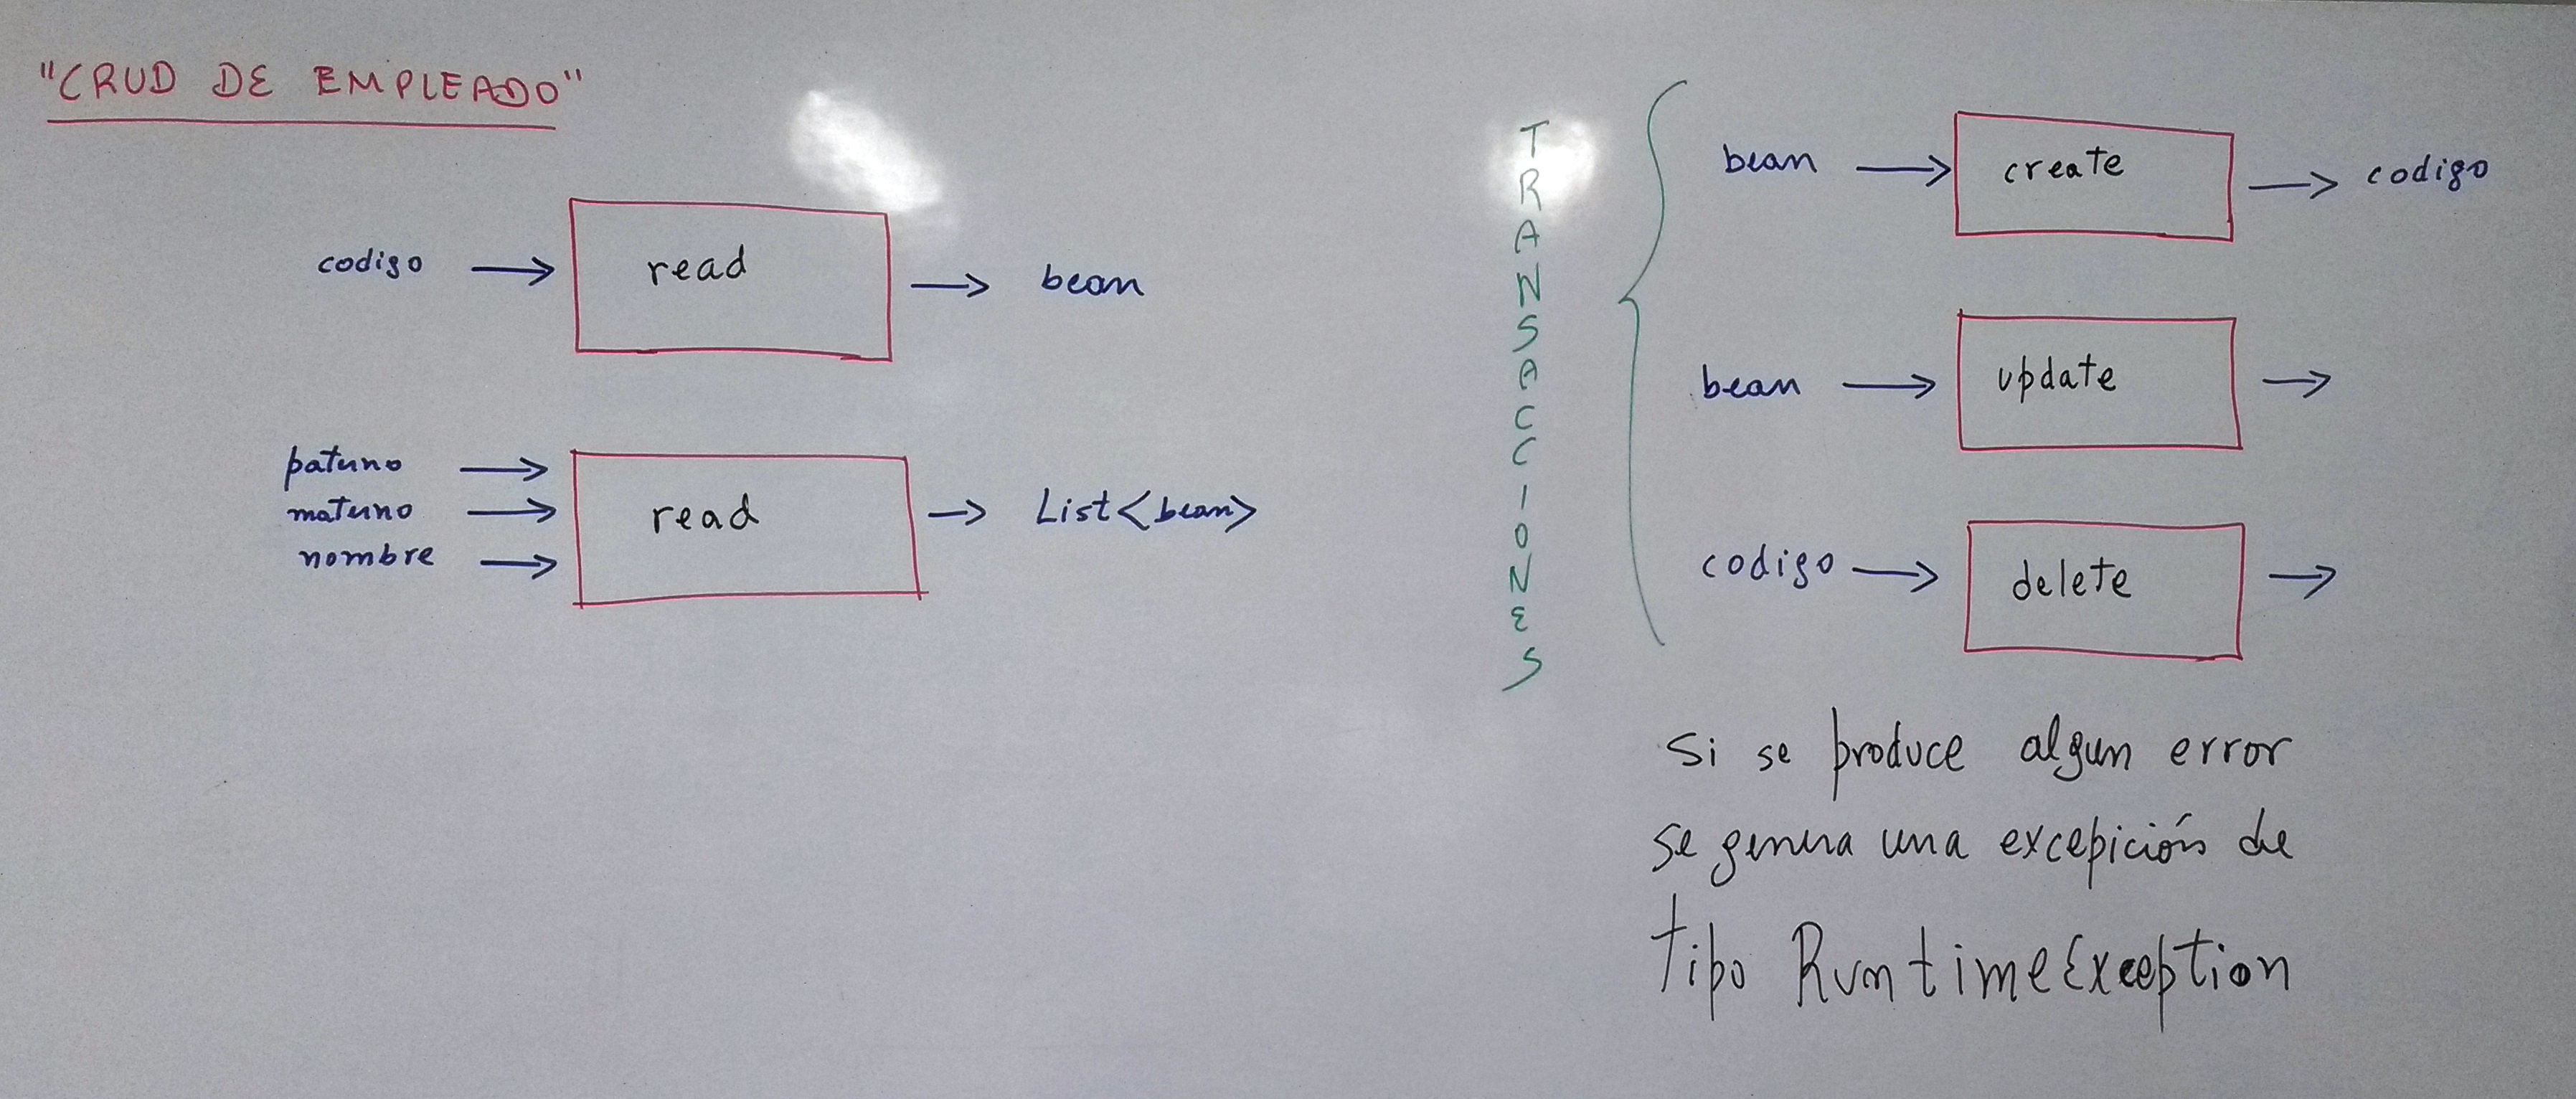 "CRUD DE EMPLEADO"
codigo → read → bean
paterno →
materno →
nombre →
read → List<bean>
TRANSACCIONES
bean → create → codigo
bean → update →
codigo → delete →
Si se produce algun error
se genera una excepición de
tipo RuntimeException